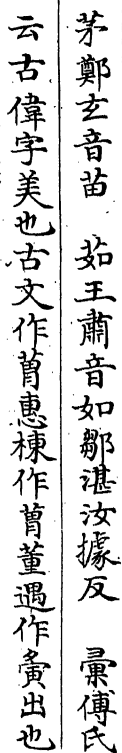 茅鄭玄音苗 茹王肅音如鄒湛汝據反 彚傅氏
云古偉字美也古文作𦳢惠棟作𦳢董遇作夤出也